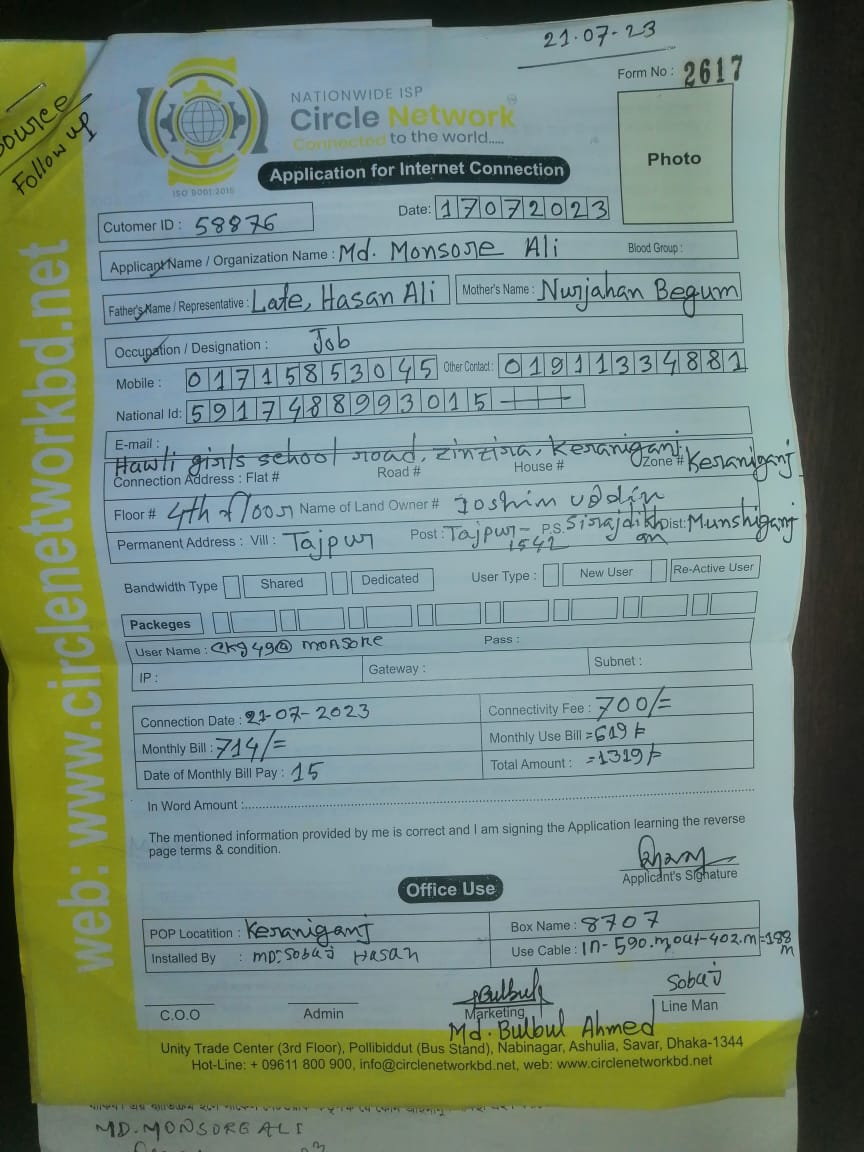 21-07-23
Form No : 2617
source
Follow up
NATIONWIDE ISP
Circle Network
Connected to the world.....
ISO 9001:2015
Application for Internet Connection
Photo
Cutomer ID : 58876
Date: 17072023
Applicant Name / Organization Name : Md. Monsore Ali Blood Group :
Father's Name / Representative : Late, Hasan Ali Mother's Name : Nurjahan Begum
Occupation / Designation : Job
Mobile : 01715853045 Other Contact : 01911334881
National Id: 5917488993015
E-mail :
Hawli girls school road, zinzira, Keraniganj
Connection Address : Flat # Road # House # Zone # Keraniganj
Floor # 4th floor Name of Land Owner # Joshim uddin
Permanent Address : Vill : Tajpur Post : Tajpur-1542 P.S. Sirajdikhan Dist: Munshiganj
Bandwidth Type Shared Dedicated User Type : New User Re-Active User
Packeges
User Name : ckg49@monsore Pass :
IP : Gateway : Subnet :
Connection Date : 21-07-2023 Connectivity Fee : 700/=
Monthly Bill : 714/= Monthly Use Bill = 619/=
Date of Monthly Bill Pay : 15 Total Amount : =1319/=
In Word Amount :
The mentioned information provided by me is correct and I am signing the Application learning the reverse
page terms & condition.
Applicant's Signature
Office Use
POP Locatition : Keraniganj Box Name : 8707
Installed By : MD: Sobuj Hasan Use Cable : In-590.m, out-402.m=188m
C.O.O Admin Bulbul Marketing Sobuj Line Man
Md. Bulbul Ahmed
Unity Trade Center (3rd Floor), Pollibiddut (Bus Stand), Nabinagar, Ashulia, Savar, Dhaka-1344
Hot-Line: + 09611 800 900, info@circlenetworkbd.net, web: www.circlenetworkbd.net
web: www.circlenetworkbd.net
MD. MONSORE ALI